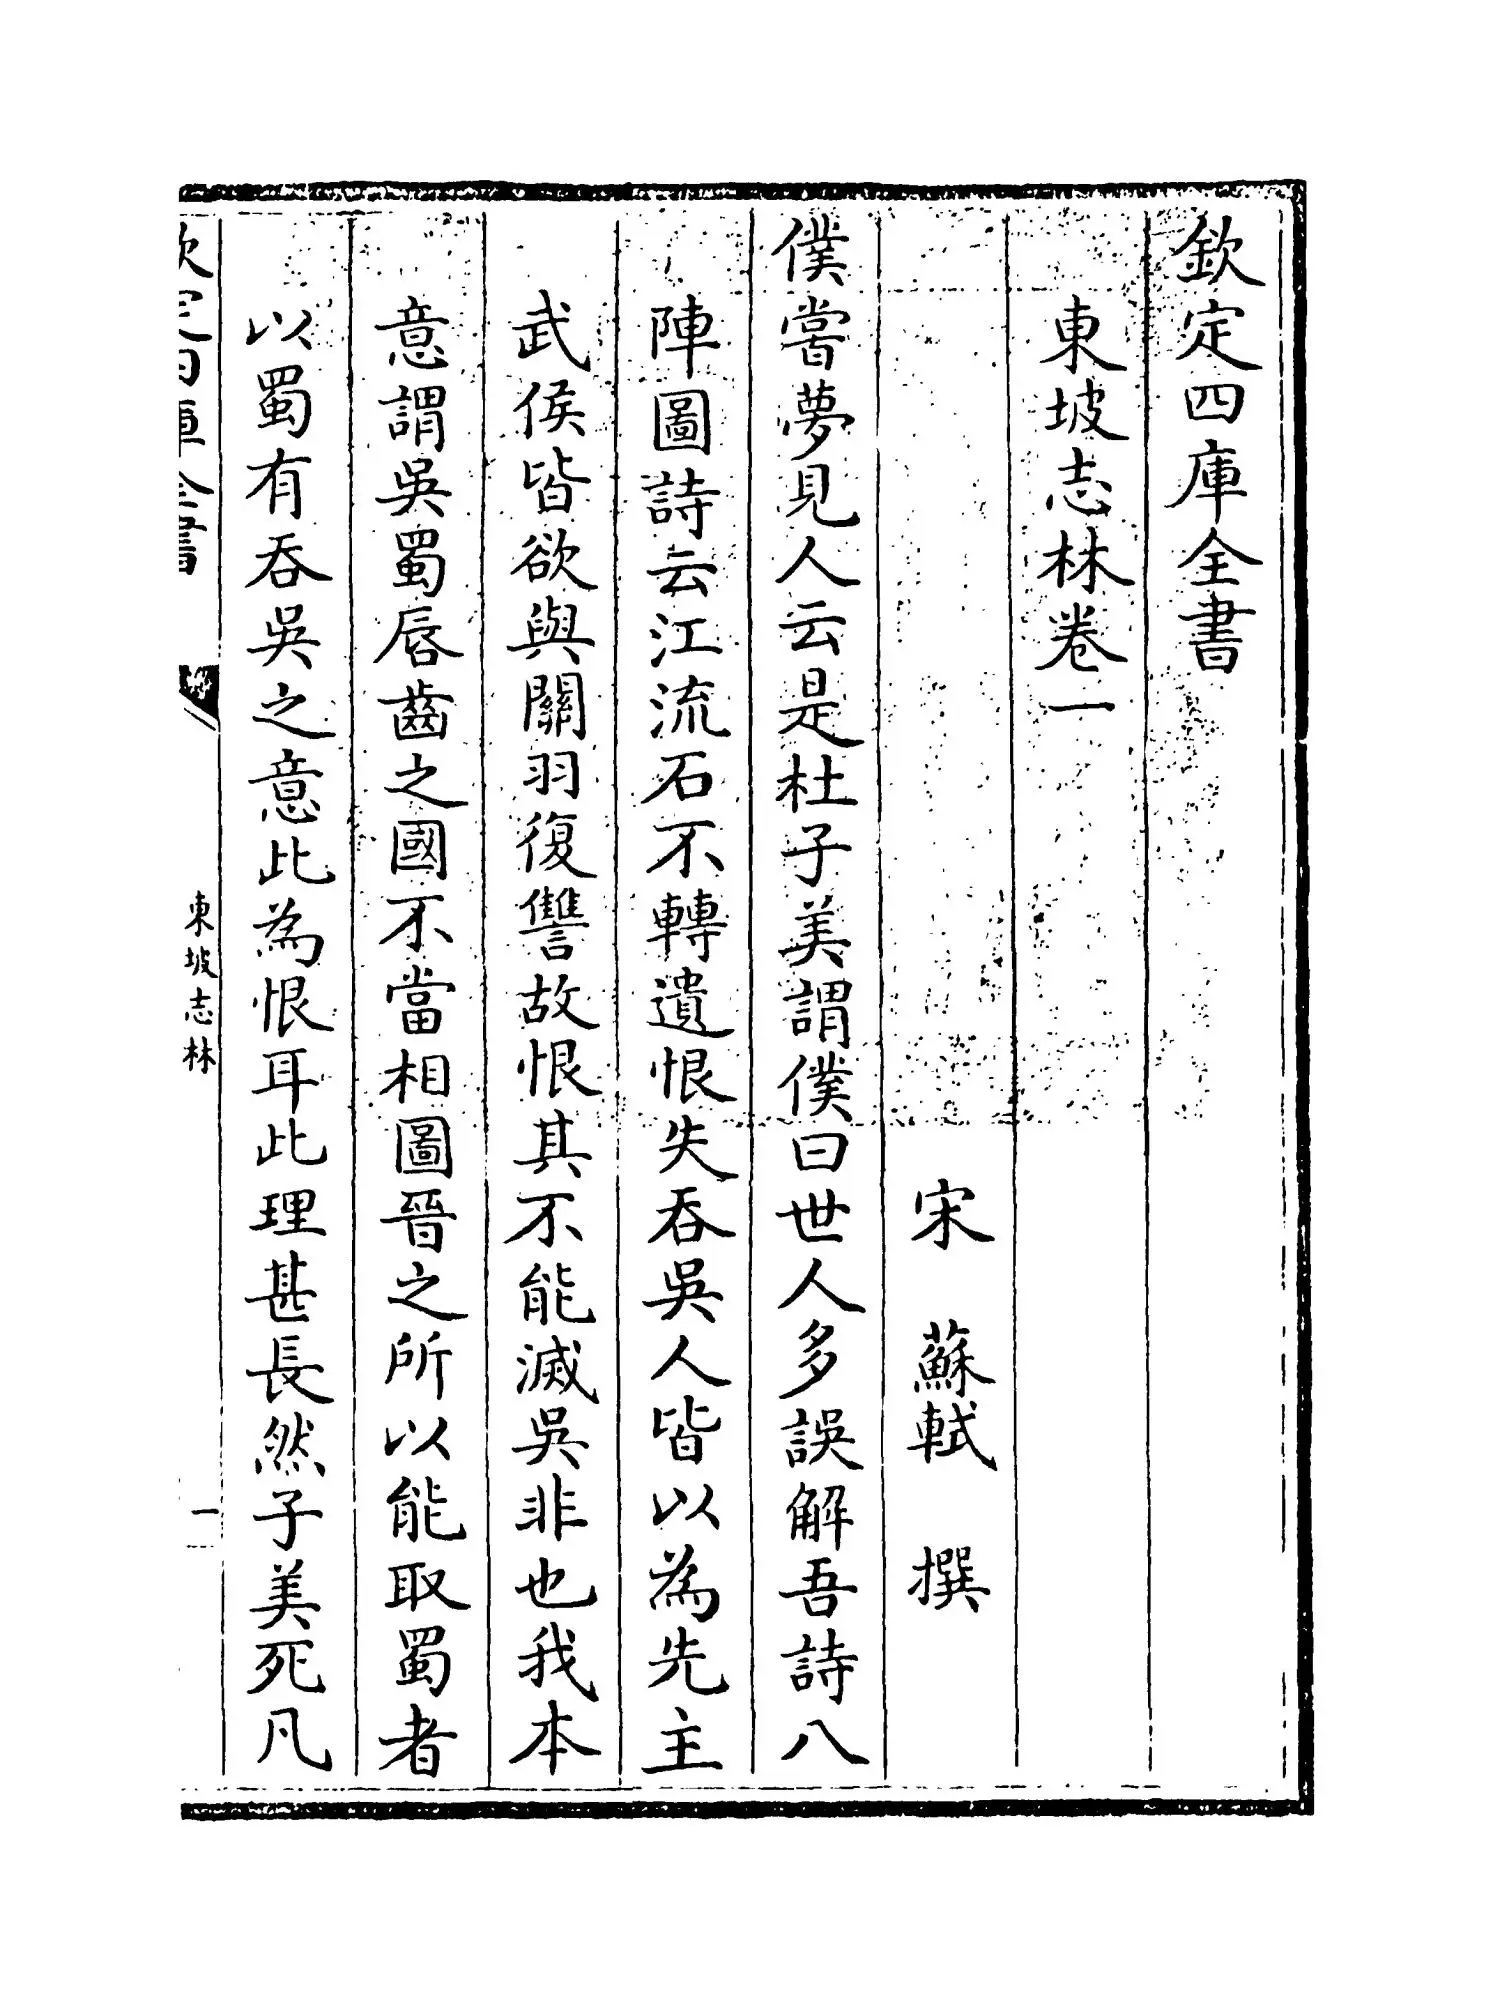 欽定四庫全書
東坡志林卷一
宋 蘇軾 撰
僕嘗夢見人云是杜子美謂僕曰世人多誤解吾詩八
陣圖詩云江流石不轉遺恨失吞吳人皆以為先主
武侯皆欲與關羽復讐故恨其不能滅吳非也我本
意謂吳蜀唇齒之國不當相圖晉之所以能取蜀者
以蜀有吞吳之意此為恨耳此理甚長然子美死凡
欽定四庫全書
東坡志林
一